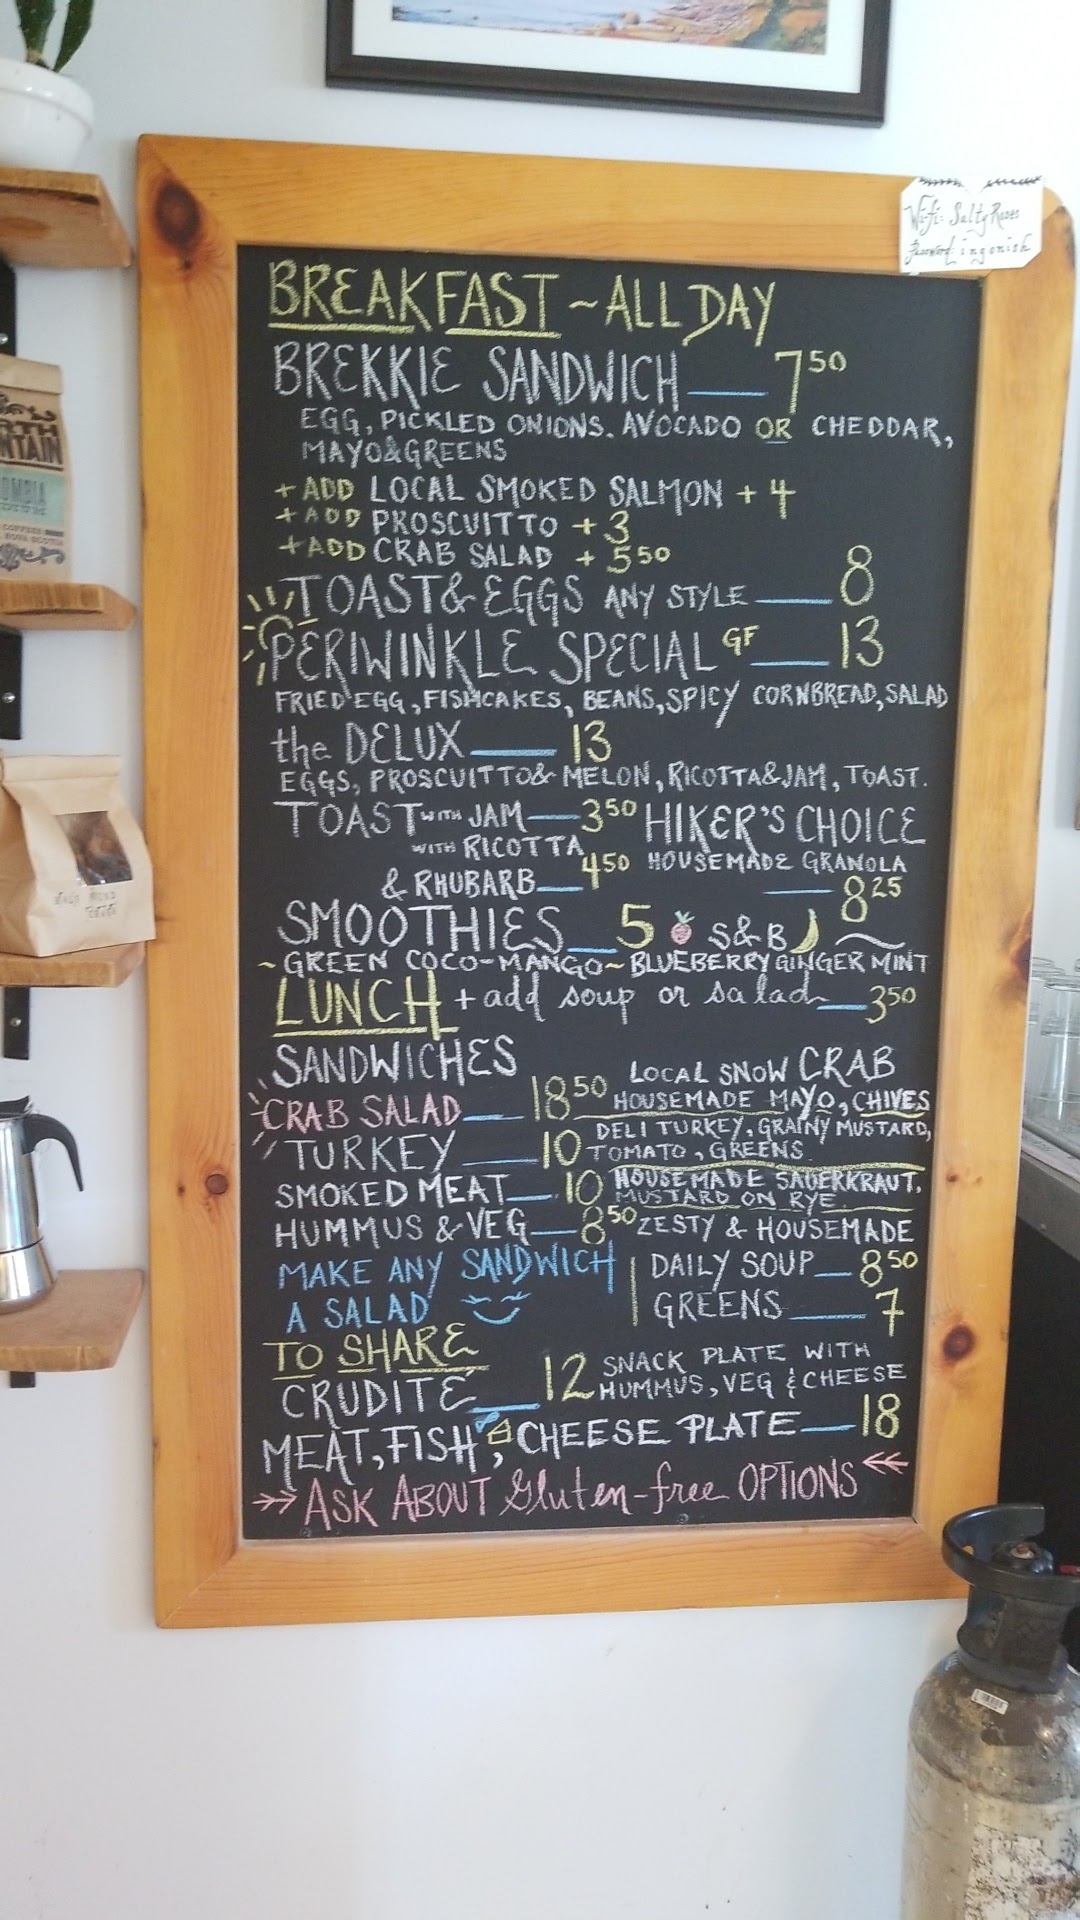 Wi-fi: SaltyRoses
Password: ingonish
BREAKFAST ~ ALL DAY
BREKKIE SANDWICH 7 50
EGG, PICKLED ONIONS. AVOCADO OR CHEDDAR,
MAYO & GREENS
+ ADD LOCAL SMOKED SALMON + 4
+ ADD PROSCUITTO + 3
+ ADD CRAB SALAD + 5 50
TOAST & EGGS ANY STYLE 8
PERIWINKLE SPECIAL GF 13
FRIED EGG, FISHCAKES, BEANS, SPICY CORNBREAD, SALAD
the DELUX 13
EGGS, PROSCUITTO & MELON, RICOTTA & JAM, TOAST.
TOAST WITH JAM 3 50
WITH RICOTTA
& RHUBARB 4 50
HIKER'S CHOICE
HOUSEMADE GRANOLA
8 25
SMOOTHIES 5 S&B
~ GREEN COCO-MANGO ~ BLUEBERRY GINGER MINT
LUNCH + add soup or salad 3 50
SANDWICHES
CRAB SALAD 18 50
LOCAL SNOW CRAB
HOUSEMADE MAYO, CHIVES
TURKEY 10
DELI TURKEY, GRAINY MUSTARD,
TOMATO, GREENS.
SMOKED MEAT 10
HOUSEMADE SAUERKRAUT,
MUSTARD ON RYE
HUMMUS & VEG 8 50 ZESTY & HOUSEMADE
MAKE ANY SANDWICH
A SALAD
DAILY SOUP 8 50
GREENS 7
TO SHARE
CRUDITÉ 12
SNACK PLATE WITH
HUMMUS, VEG & CHEESE
MEAT, FISH, CHEESE PLATE 18
ASK ABOUT Gluten-free OPTIONS